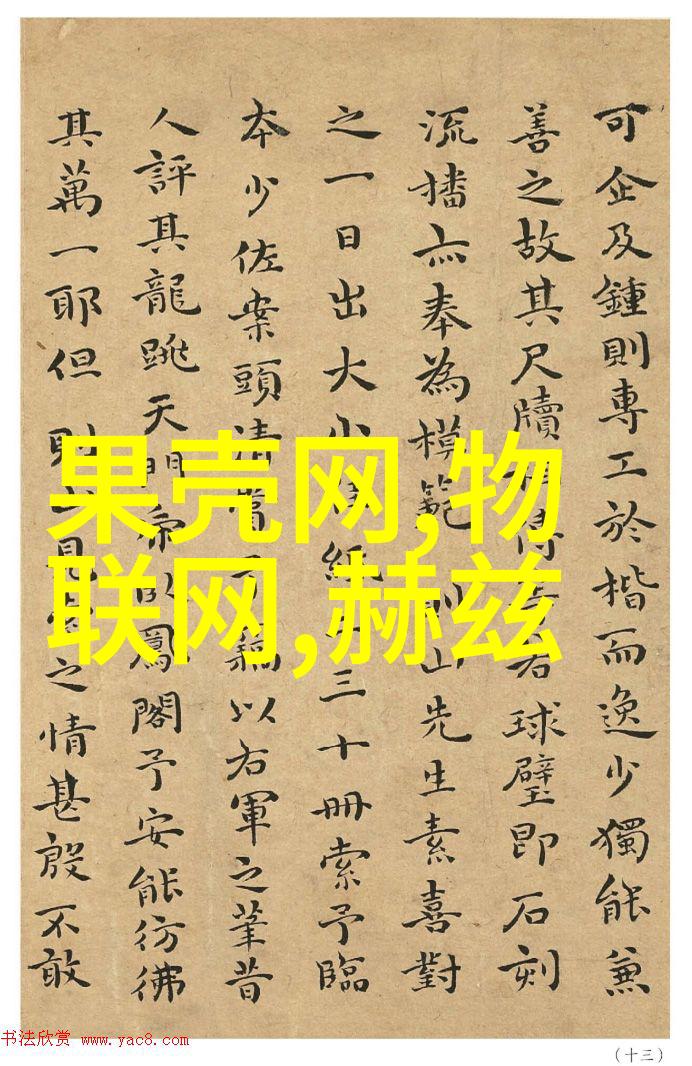 可企及鍾則專工於楷而逸少獨能兼
善之故其尺牘若球璧即石刻
流播亦奉為模範山先生素喜對
之一日出大小紙三十冊索予臨
本少佐案頭清以右軍之筆昔
人評其龍跳天門臥鳳閣予安能彷彿
其萬一耶但見之情甚殷不敢
果壳网,物
联网,赫兹
书法欣赏 www.yac8.com
（十三）